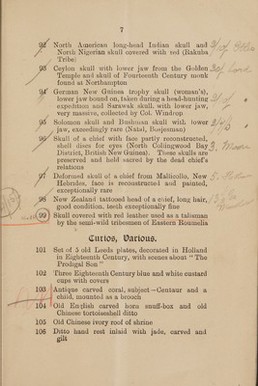 7
92 North American long-head Indian skull and
North Nigerian skull covered with red (Bakuba
Tribe)
93 Ceylon skull with lower jaw from the Golden
Temple and skull of Fourteenth Century monk
found at Northampton
94 German New Guinea trophy skull (woman's),
lower jaw bound on, taken during a head-hunting
expedition and Sarawak skull, with lower jaw,
very massive, collected by Col. Windrop
95 Solomon skull and Bushman skull with lower
jaw, exceedingly rare (Natal, Bosjesman)
96 Skull of a chief with face partly reconstructed,
shell discs for eyes (North Collingwood Bay
District, British New Guinea). These skulls are
preserved and held sacred by the dead chief's
relations
97 Deformed skull of a chief from Mallicollo, New
Hebrides, face is reconstructed and painted,
exceptionally rare
98 New Zealand tattooed head of a chief, long hair,
good condition, teeth exceptionally fine
99 Skull covered with red leather used as a talisman
by the semi-wild tribesmen of Eastern Roumelia
Curios, Various.
101 Set of 5 old Leeds plates, decorated in Holland
in Eighteenth Century, with scenes about "The
Prodigal Son"
102 Three Eighteenth Century blue and white custard
cups with covers
103 Antique carved coral, subject—Centaur and a
child, mounted as a brooch
104 Old English carved horn snuff-box and old
Chinese tortoiseshell ditto
105 Old Chinese ivory roll of shrine
106 Ditto hand rest inlaid with jade, carved and
gilt